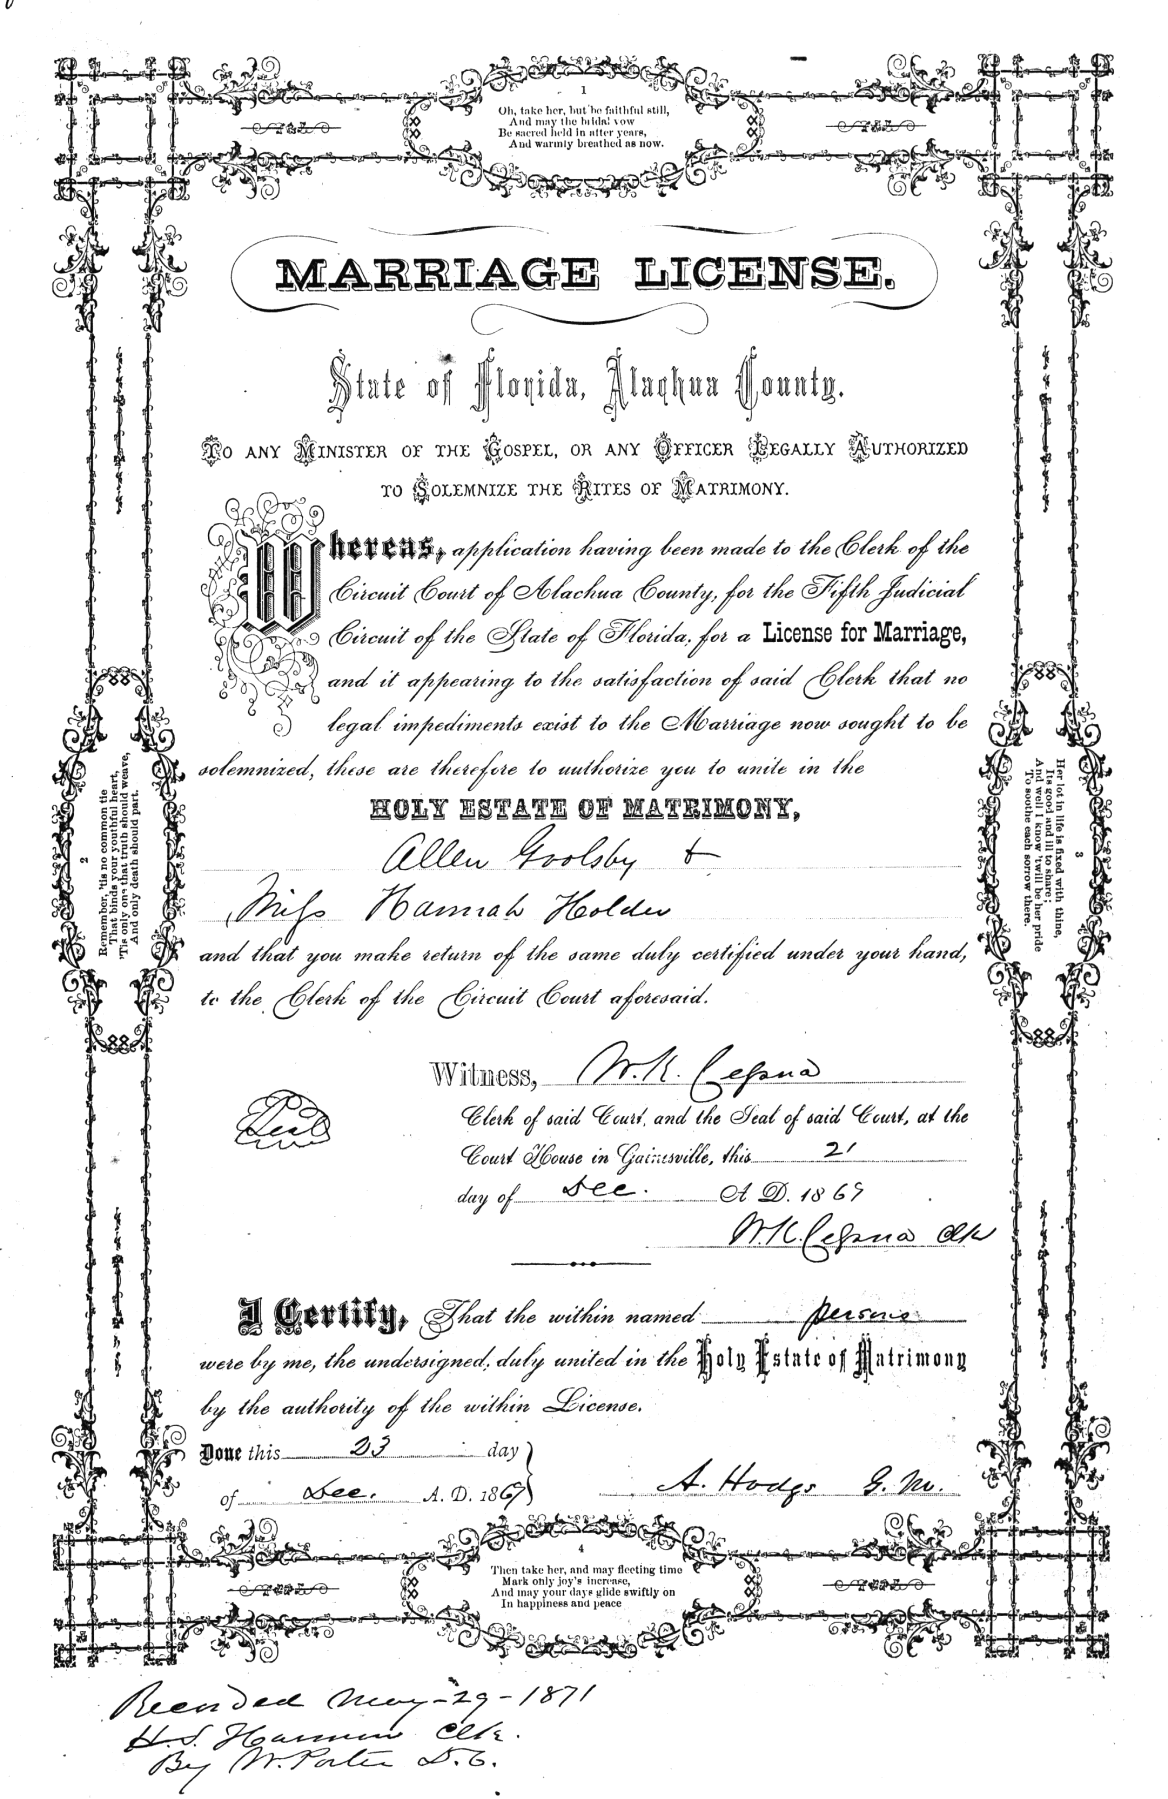 1
Oh, take her, but be faithful still,
And may the bridal vow
Be sacred held in after years,
And warmly breathed as now.
MARRIAGE LICENSE.
State of Florida, Alachua County.
TO ANY MINISTER OF THE GOSPEL, OR ANY OFFICER LEGALLY AUTHORIZED
TO SOLEMNIZE THE RITES OF MATRIMONY.
Whereas, application having been made to the Clerk of the
Circuit Court of Alachua County, for the Fifth Judicial
Circuit of the State of Florida, for a License for Marriage,
and it appearing to the satisfaction of said Clerk that no
legal impediments exist to the Marriage now sought to be
solemnized, these are therefore to authorize you to unite in the
HOLY ESTATE OF MATRIMONY,
Allen Goolsby &
Miss Hannah Holder
and that you make return of the same duly certified under your hand,
to the Clerk of the Circuit Court aforesaid.
Witness, W. K. Cessna
Seal
Clerk of said Court, and the Seal of said Court, at the
Court House in Gainesville, this 21
day of Dec. A D. 1869
W. K. Cessna Clk
I Certify, That the within named persons
were by me, the undersigned, duly united in the Holy Estate of Matrimony
by the authority of the within License.
Done this 23 day
of Dec. A. D. 1869
A. Hodgs G. M.
2
Remember, 'tis no common tie
That binds your youthful heart,
'Tis only one that truth should weave,
And only death should part.
3
Her lot in life is fixed with thine,
Its good and ill to share;
And well I know 'twill be her pride
To soothe each sorrow there.
4
Then take her, and may fleeting time
Mark only joy's increase,
And may your days glide swiftly on
In happiness and peace
Recorded May-29-1871
H. S. Harmon Clk.
By W. Porter D. C.